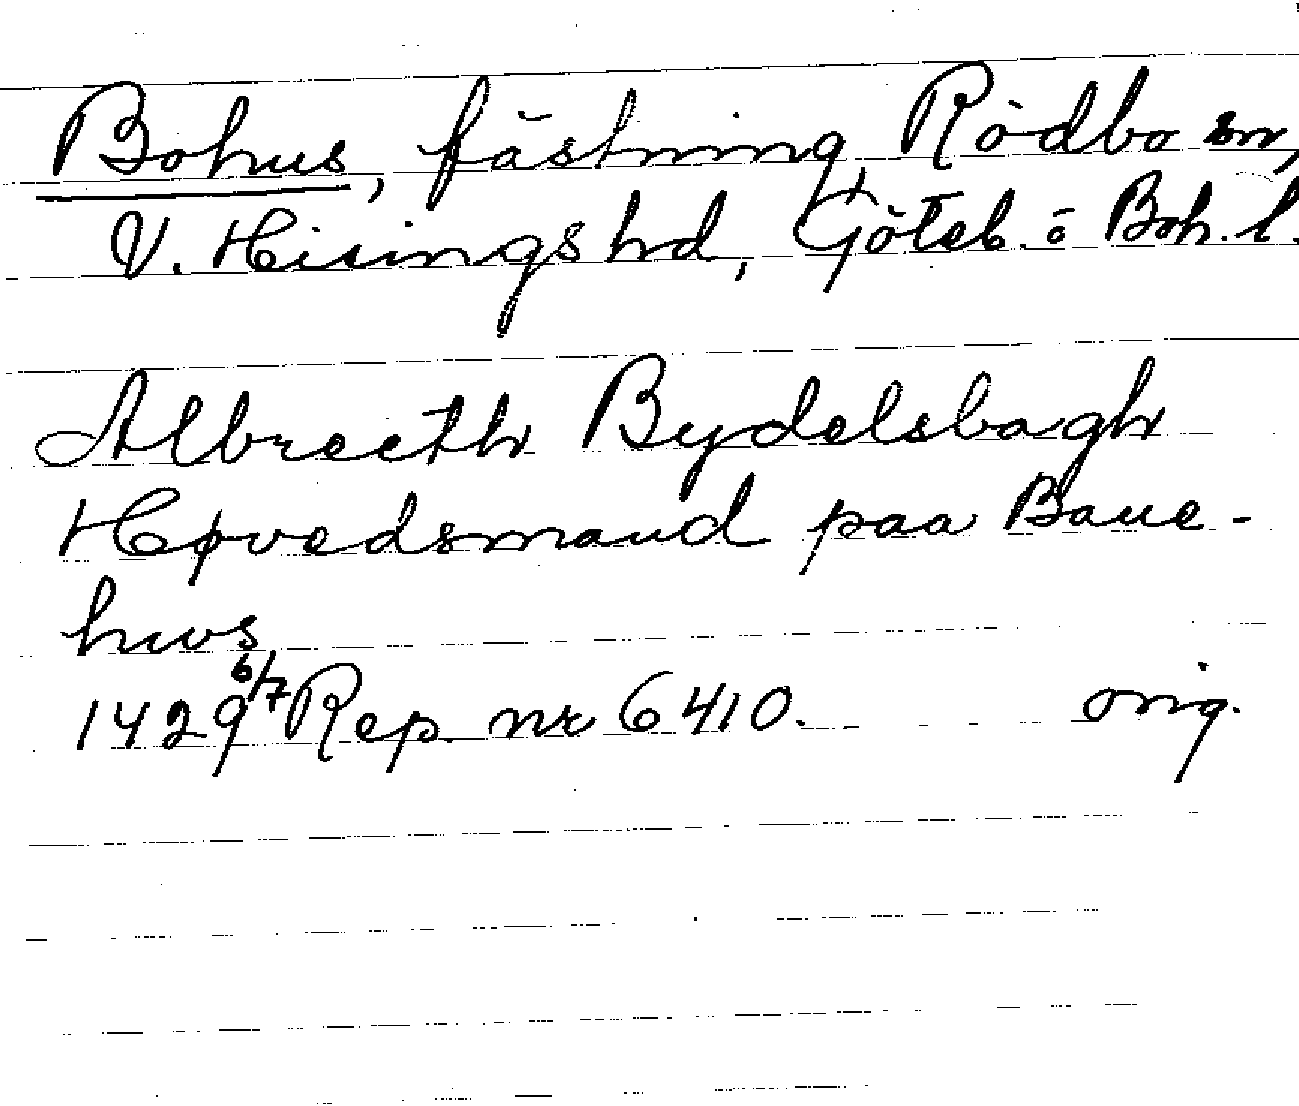 Bohus, fästning, Rödbo sn,
V. Hisings hd, Göteb. o Boh. l.
Albrecth Bydelsbagh
Høvedsmand paa Baue-
hws
1429 6/7 Rep. nr 6410. orig.